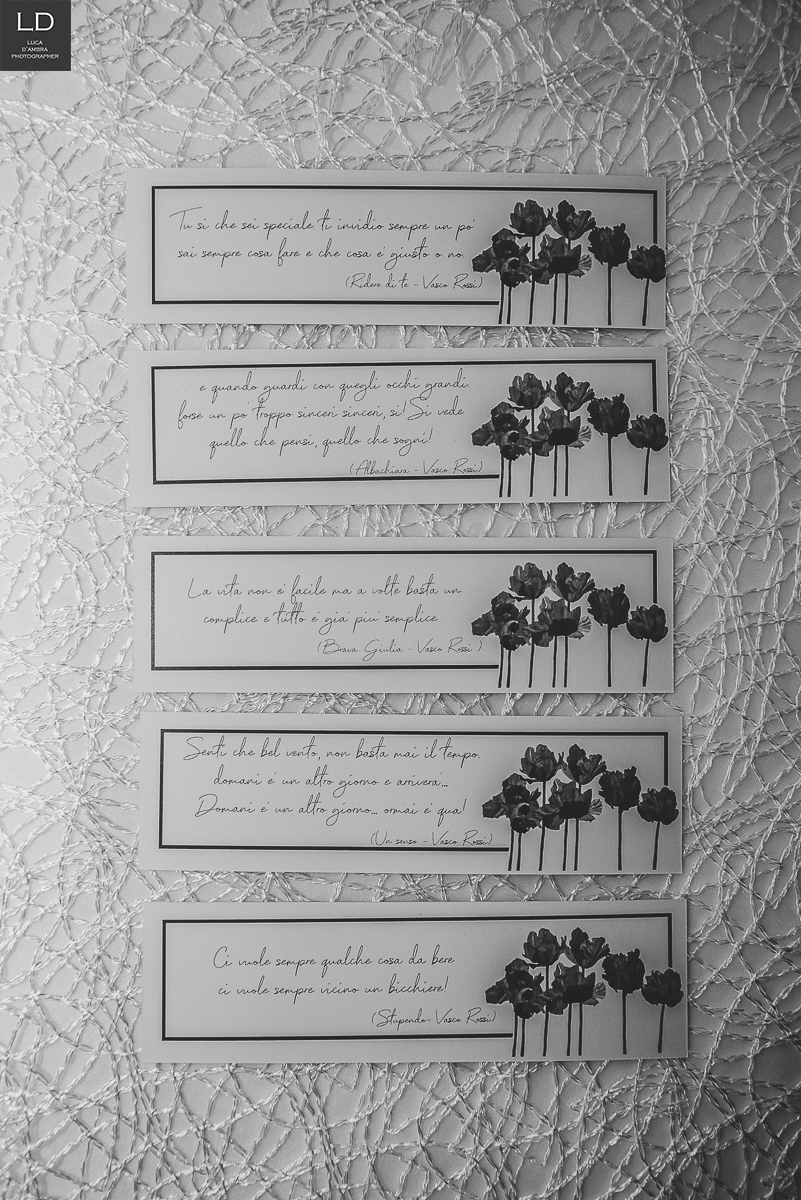 LD
LUCA
D'AMBRA
PHOTOGRAPHER
Tu si che sei speciale. ti invidio sempre un po'
sai sempre cosa fare e che cosa e' giusto o no.
(Ridere di te - Vasco Rossi)
e quando guardi con quegli occhi grandi.
forse un po' troppo sinceri sinceri, si! Si vede
quello che pensi, quello che sogni!
(Albachiara - Vasco Rossi)
La vita non e' facile ma a volte basta un
complice e tutto e' gia' piu' semplice
(Brava Giulia - Vasco Rossi )
Senti che bel vento, non basta mai il tempo.
domani e' un altro giorno e arrivera'...
Domani e' un altro giorno... ormai e' qua!
(Un senso - Vasco Rossi)
Ci vuole sempre qualche cosa da bere
ci vuole sempre vicino un bicchiere!
(Stupendo- Vasco Rossi)